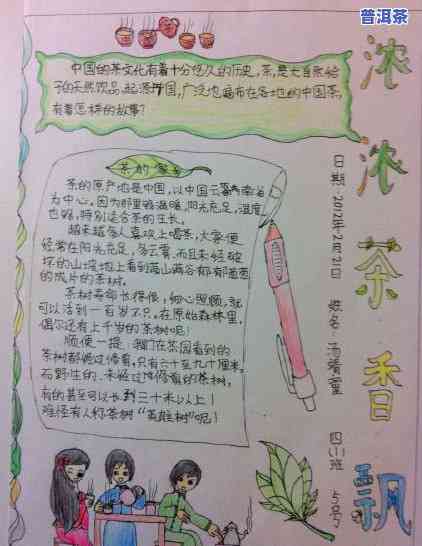 普洱茶
中国的茶文化有着十分悠久的历史，茶，是大自然给
予的天然饮品，起源于中国，广泛地遍布在各地的中国茶，
有着怎样的故事？
茶的家乡
茶的原产地是中国，以中国云南省
为中心，因为那里够温暖，阳光充足，温度
也够，特别适合茶的生长。
越来越多人喜欢上喝茶，大家便
经常在阳光充足，多云雾，而且未经破
坏的山坡地上看到满山满谷郁郁葱葱
的成片的茶树。
茶树寿命长得很，细心照顾，就
可以活到一百岁不只，在原始森林里，
偶尔还有上千岁的茶树呢！
顺便一提，我们在茶园看到的
茶树都经过修剪，只有六十至九十厘米，
若野生的、未经过修剪的茶树，
有的甚至可以长到三十米以上！
难怪有人称茶树“英雄树”呢！
浓浓茶香飘
日期：2012年2月21日
姓名：汤
四(1)班
5号